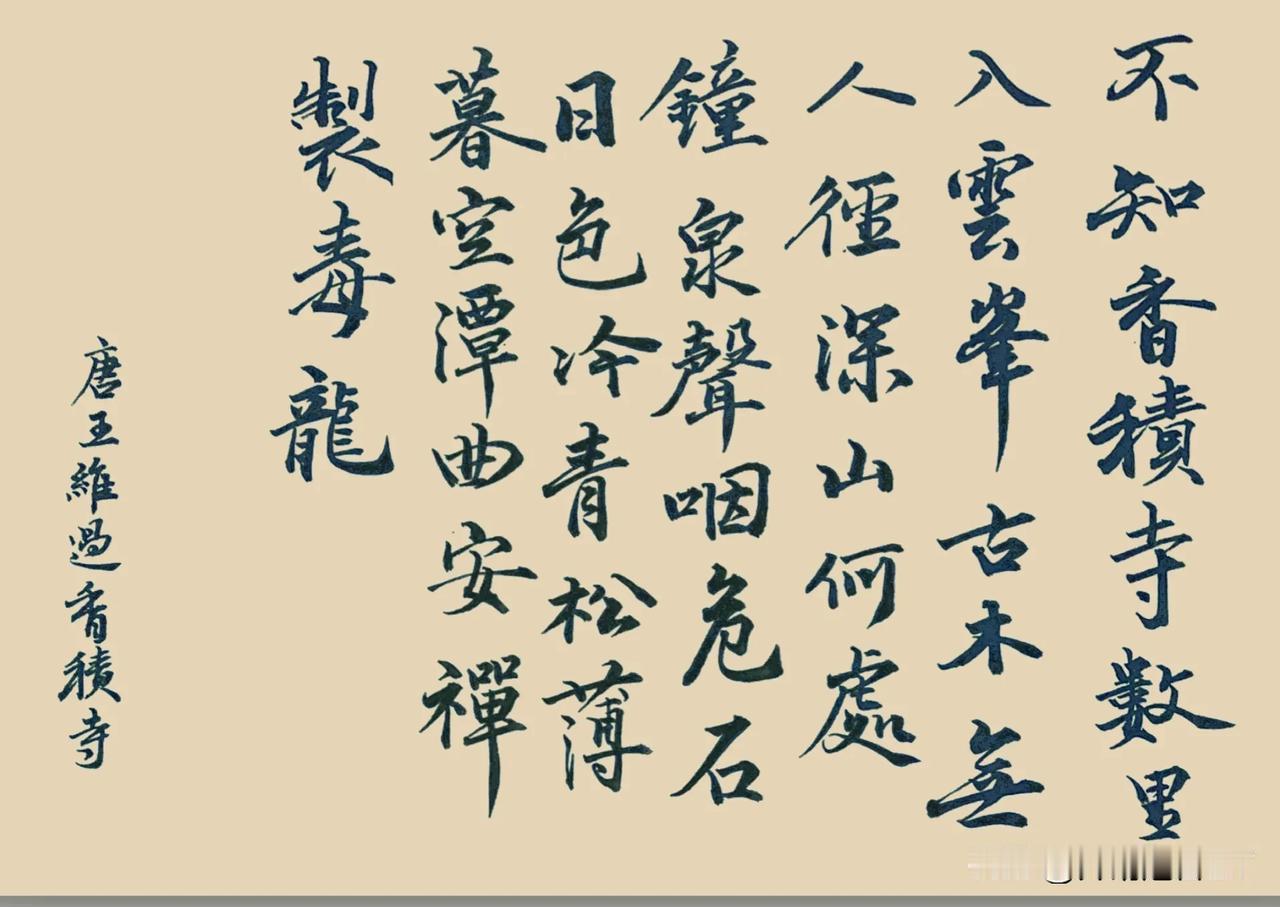 不知香積寺數里
入雲峯古木無
人徑深山何處
鐘泉聲咽危石
日色冷青松薄
暮空潭曲安禪
製毒龍
唐王維過香積寺